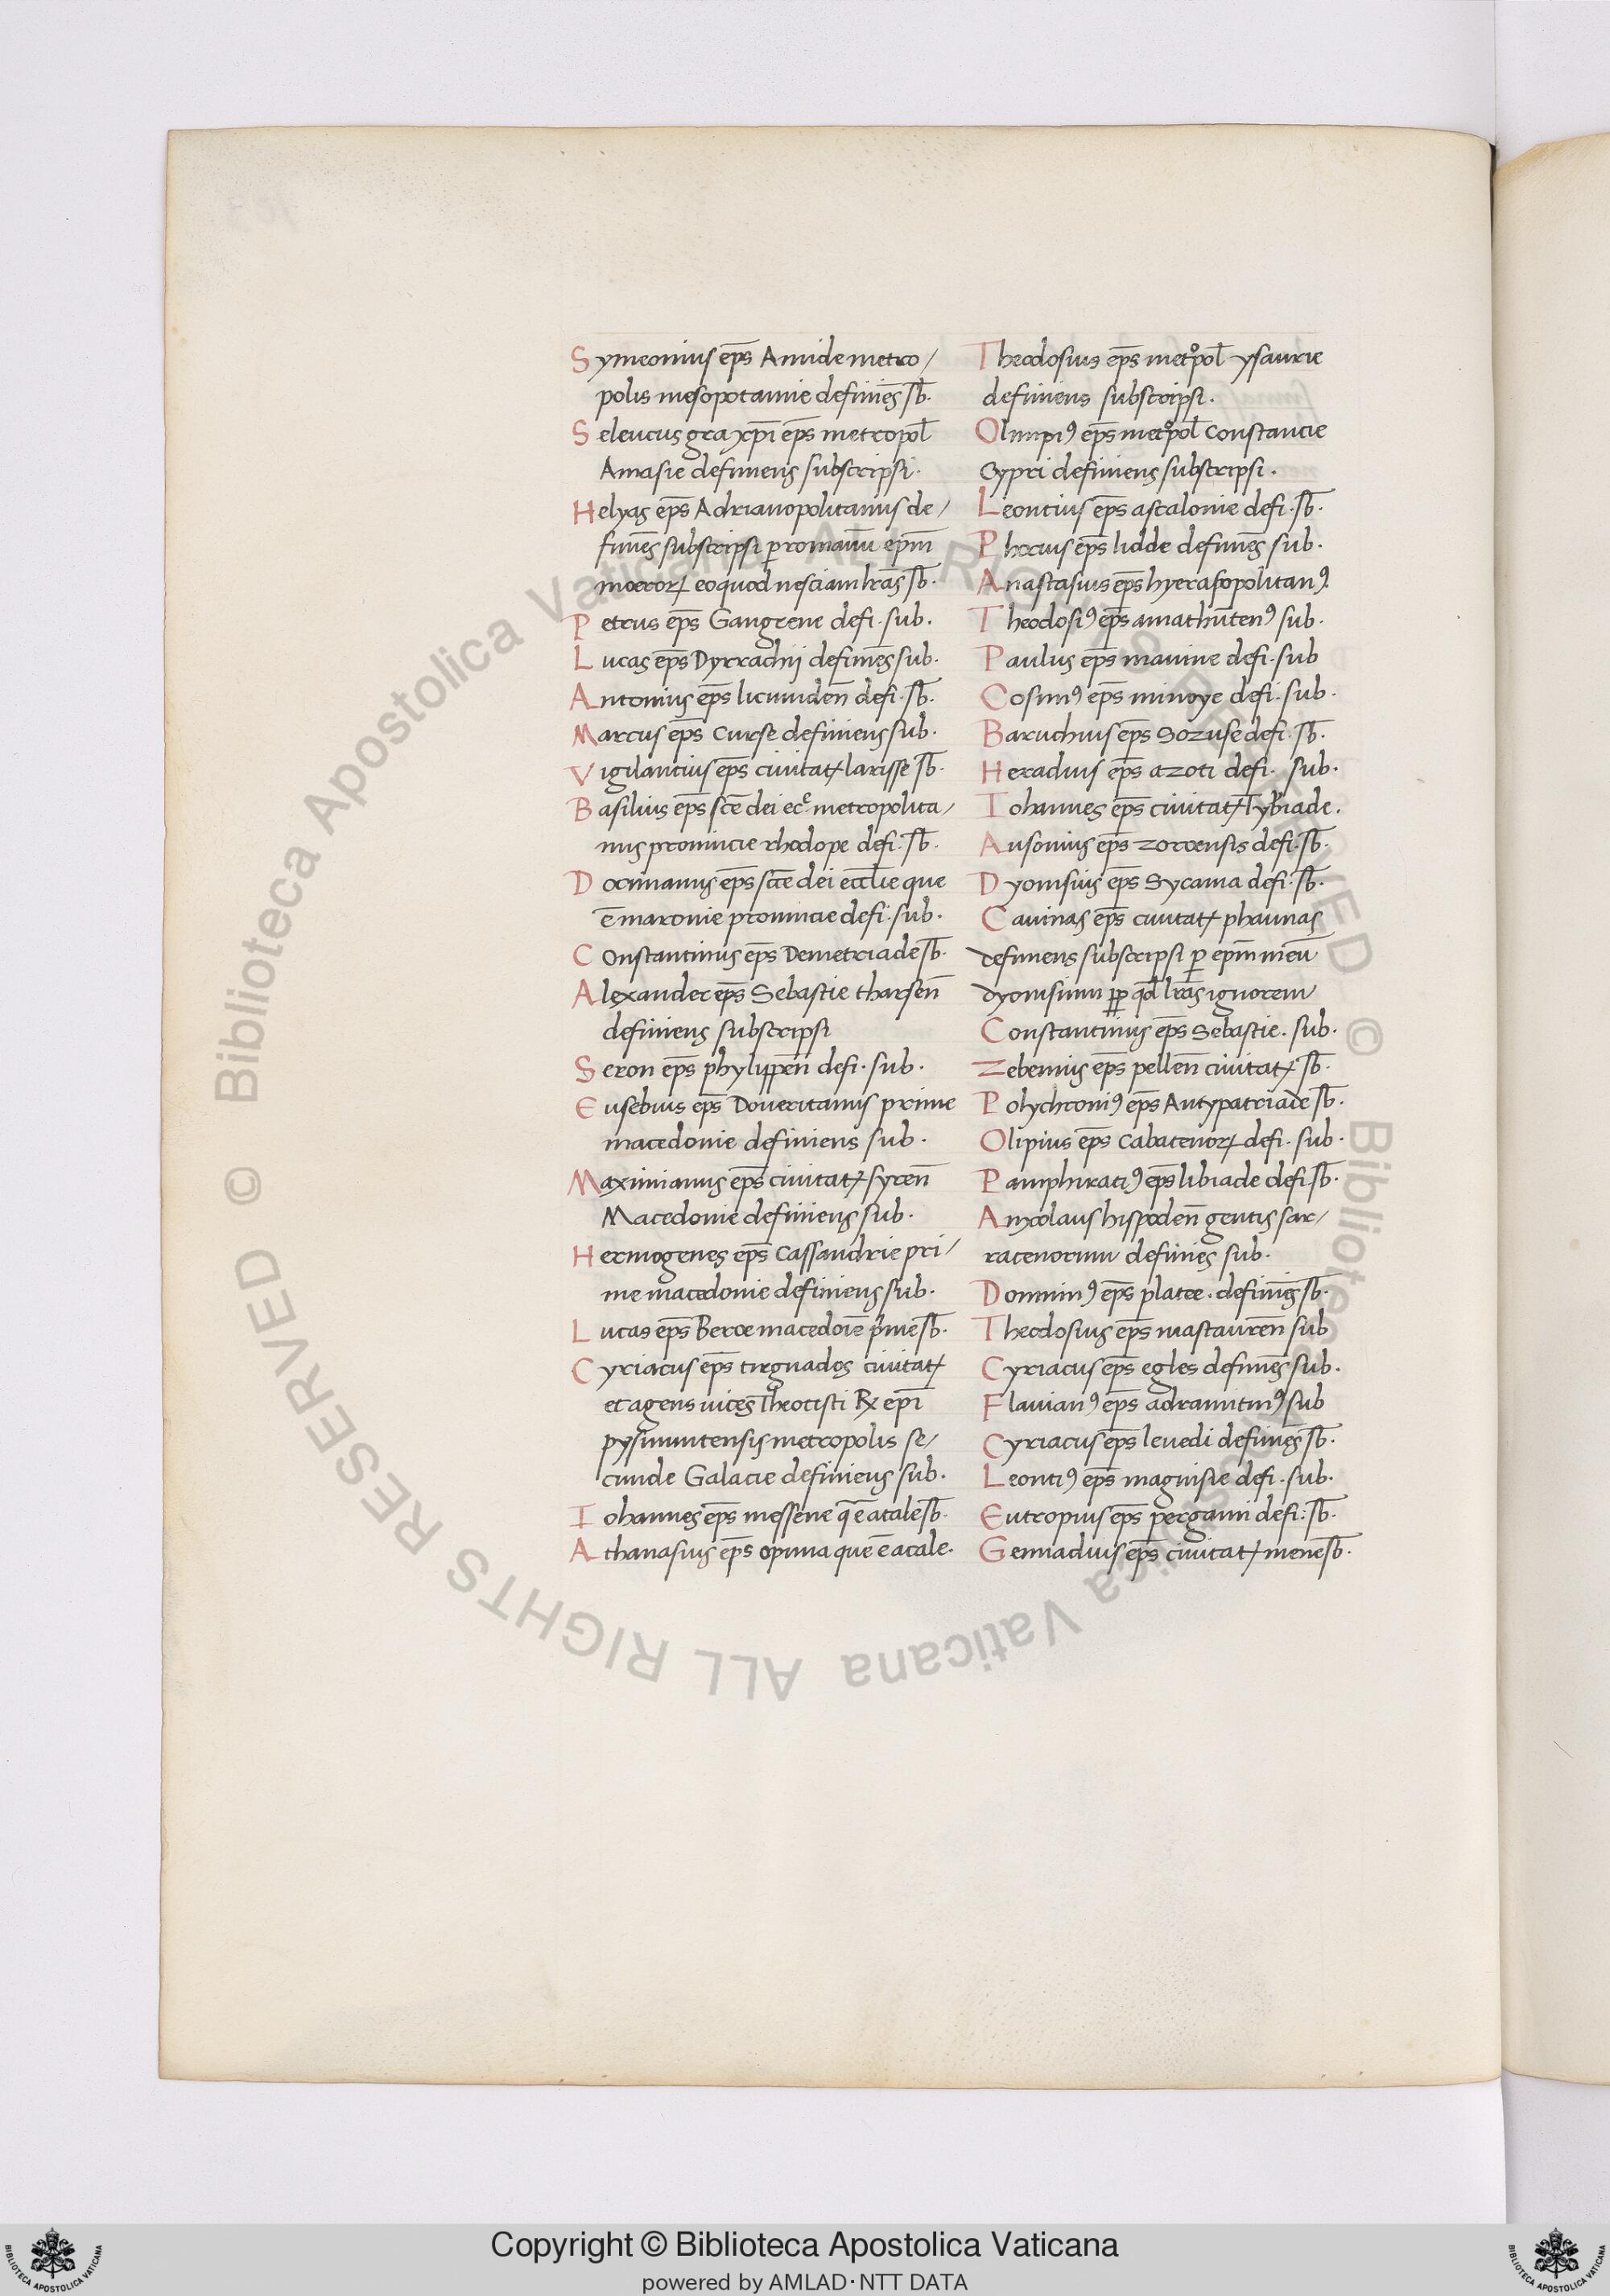 Symeonius ep̄s Amide metro/
polis mesopotamie definiēs sb̄.
Seleucus gr̄a xp̄i ep̄s metropol̄
Amasie definiens subscripsi.
Helyas ep̄s Adrianopolitanus de/
finiēs subscripsi ꝑ romanū ep̄m
moeroꝝ eo quod nesciam lr̄as sb̄.
Petrus ep̄s Gangrene defi. sub.
Lucas ep̄s Dyrrachij definiēs sub.
Antonius ep̄s licinniden̄ defi. sb̄.
Marcus ep̄s Curse definiens sub.
Vigilantius ep̄s ciuitatꝭ larisse sb̄.
Basilius ep̄s sc̄e dei ec̄e metropolita/
nus prouincie rhodope defi. sb̄.
Docimanus ep̄s sc̄e dei eccl̄ie que
ē maronie prouincie defi. sub.
Constantinus ep̄s Demetriade sb̄.
Alexander ep̄s Sebastie tharsen̄
definiens subscripsi
Seron ep̄s phylippen̄ defi. sub.
Eusebius ep̄s Doueritanus prime
macedonie definiens sub.
Maximianus ep̄s ciuitatꝭ syren̄
Macedonie definiens sub.
Hermogenes ep̄s Cassandrie pri/
me macedonie definiens sub.
Lucas ep̄s Beroe macedoīe p̄me sb̄.
Cyriacus ep̄s tregnades ciuitatꝭ
et agens uices Theotisti ep̄i
pysinuntensis metropolis se/
cunde Galacie definiens sub.
Iohannes ep̄s messene q̄ ē atale sb̄.
Athanasius ep̄s opuna que ē atale.
Theodosius ep̄s metᵒpol̄ ysaurie
definiens subscripsi.
Olimpiꝰ ep̄s metᵒpol̄ Constancie
Cypri definiens subscripsi.
Leontius ep̄s ascalonie defi. sb̄.
Phocius ep̄s lidde definiēs sub.
Anastasius ep̄s hyerasopolitanꝰ.
Theodosiꝰ ep̄s amathūtenꝰ sub.
Paulus ep̄s manine defi. sub
Cosimꝰ ep̄s minoye defi. sub.
Baruchius ep̄s Sozuse defi. sb̄.
Heraclius ep̄s azoti defi. sub.
Iohannes ep̄s ciuitatꝭ Tybʳiade.
Ausonius ep̄s zoroensis defi. sb̄.
Dyonisius ep̄s Sycama defi. sb̄.
Cauinas ep̄s ciuitatꝭ phaunas
definiens subscripsi ꝑ ep̄m meū
dyonisium ꝓp qd̄ lr̄as ignorem
Constantinus ep̄s Sebastie. sub.
Zebennus ep̄s pellen̄ ciuitatꝭ sb̄.
Polychroniꝰ ep̄s Antypatriade sb̄.
Olipius ep̄s Cabatenoꝝ defi. sub.
Pamphiratiꝰ ep̄s libiade defi sb̄.
Anycolaus hispoden̄ gentis sar/
racenorum definiēs sub.
Domninꝰ ep̄s platee. definiēs sb̄.
Theodosius ep̄s mastauren̄ sub
Cyriacus ep̄s egles definiēs sub.
Flauianꝰ ep̄s adramitinꝰ sub
Cyriacus ep̄s leuedi definiēs sb̄.
Leontiꝰ ep̄s magnisie defi. sub.
Eutropius ep̄s pergami defi: sb̄.
Gennadius ep̄s ciuitatꝭ mene sb̄.
© Biblioteca Apostolica Vaticana ALL RIGHTS RESERVED © Biblioteca Apostolica Vaticana ALL RIGHTS RESERVED
Copyright © Biblioteca Apostolica Vaticana
powered by AMLAD·NTT DATA
BIBLIOTECA APOSTOLICA VATICANA
BIBLIOTECA APOSTOLICA VATICANA